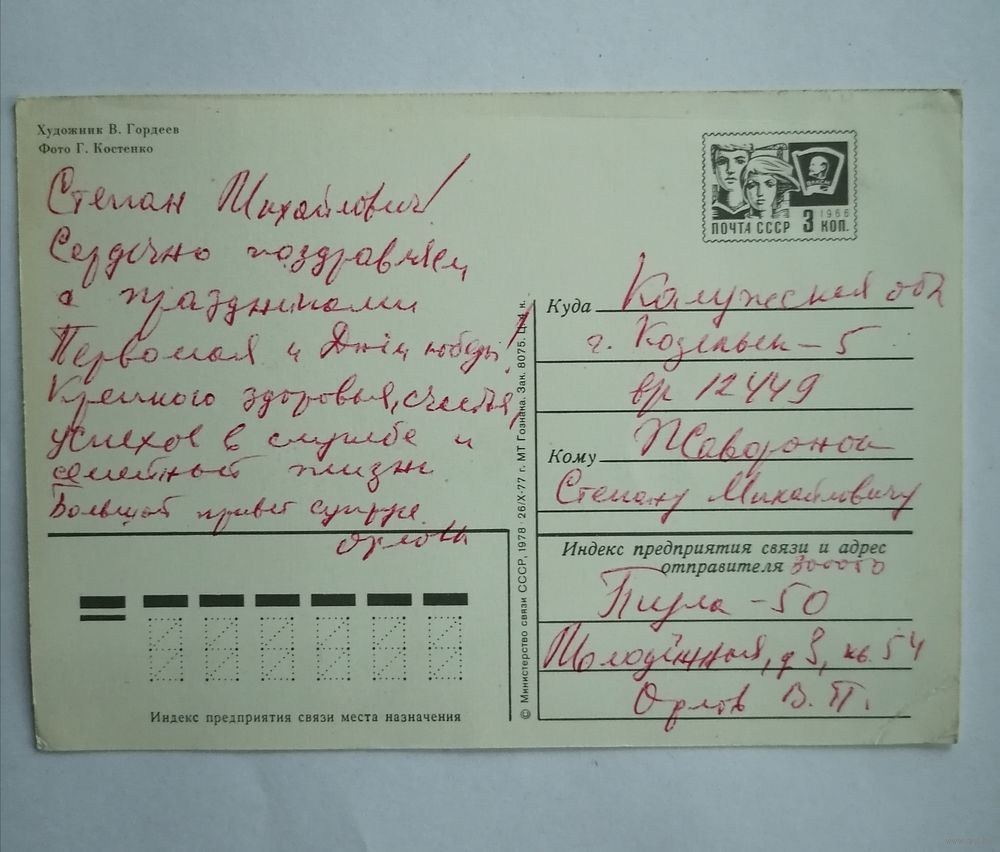 Художник В. Гордеев
Фото Г. Костенко
Степан Михайлович!
Сердечно поздравляем
с праздниками
Первомая и Днём победы!
Крепкого здоровья, счастья,
успехов в службе и
семейной жизни
Большой привет супруге.
Орловы
ПОЧТА СССР 3 КОП.
1966
ВЛКСМ
Куда Калужская обл
г. Козельск-5
вр 12449
Кому
Степану Михайловичу
Индекс предприятия связи и адрес
отправителя 300050
Тула-50
Молодёжная, д 9, кв. 54
Орлов В. П.
Индекс предприятия связи места назначения
© Министерство связи СССР, 1978 · 26/X-77 г. МТ Гознака. Зак. 8075. Ц. 4 к.